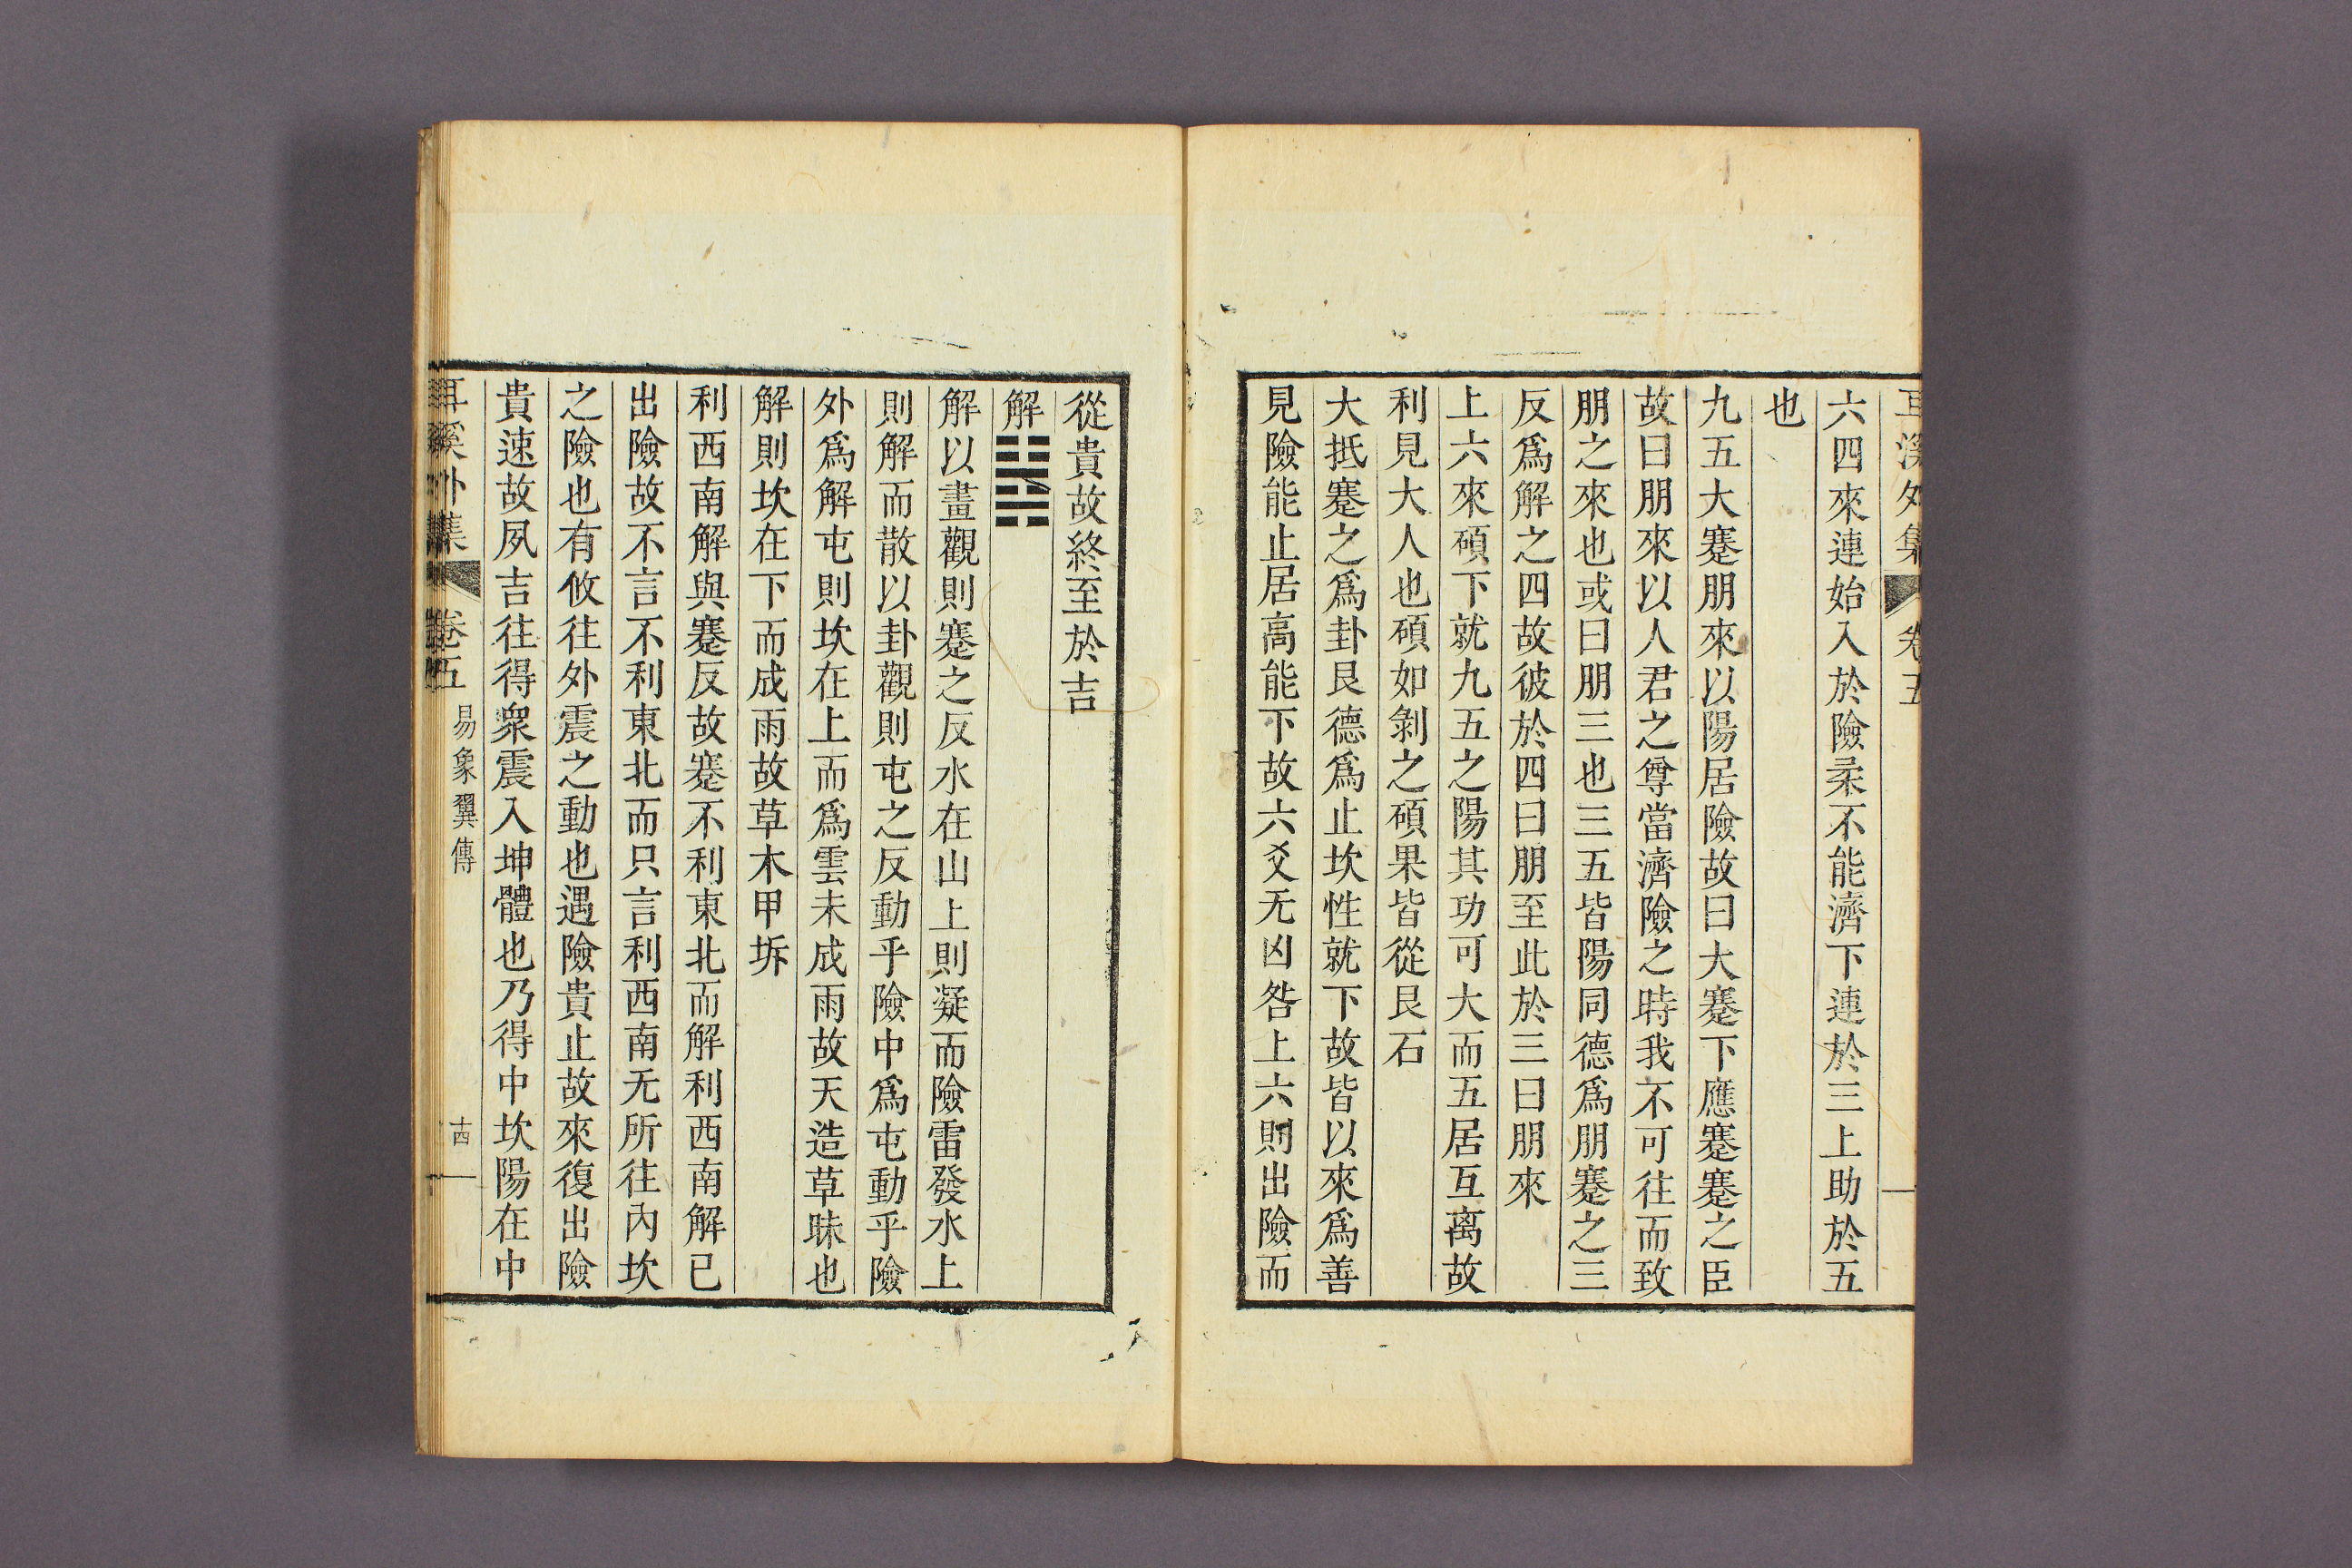 耳溪外集 卷五
六四來連始入於險柔不能濟下連於三上助於五
也
九五大蹇朋來以陽居險故曰大蹇下應蹇蹇之臣
故曰朋來以人君之尊當濟險之時我不可往而致
朋之來也或曰朋三也三五皆陽同德爲朋蹇之三
反爲解之四故彼於四曰朋至此於三曰朋來
上六來碩下就九五之陽其功可大而五居互离故
利見大人也碩如剝之碩果皆從艮石
大抵蹇之爲卦艮德爲止坎性就下故皆以來爲善
見險能止居高能下故六爻无凶咎上六則出險而
從貴故終至於吉
解䷧
解以畫觀則蹇之反水在山上則凝而險雷發水上
則解而散以卦觀則屯之反動乎險中爲屯動乎險
外爲解屯則坎在上而爲雲未成雨故天造草昧也
解則坎在下而成雨故草木甲坼
利西南解與蹇反故蹇不利東北而解利西南解已
出險故不言不利東北而只言利西南无所往內坎
之險也有攸往外震之動也遇險貴止故來復出險
貴速故夙吉往得衆震入坤體也乃得中坎陽在中
耳溪外集 卷五 易象翼傳 十四